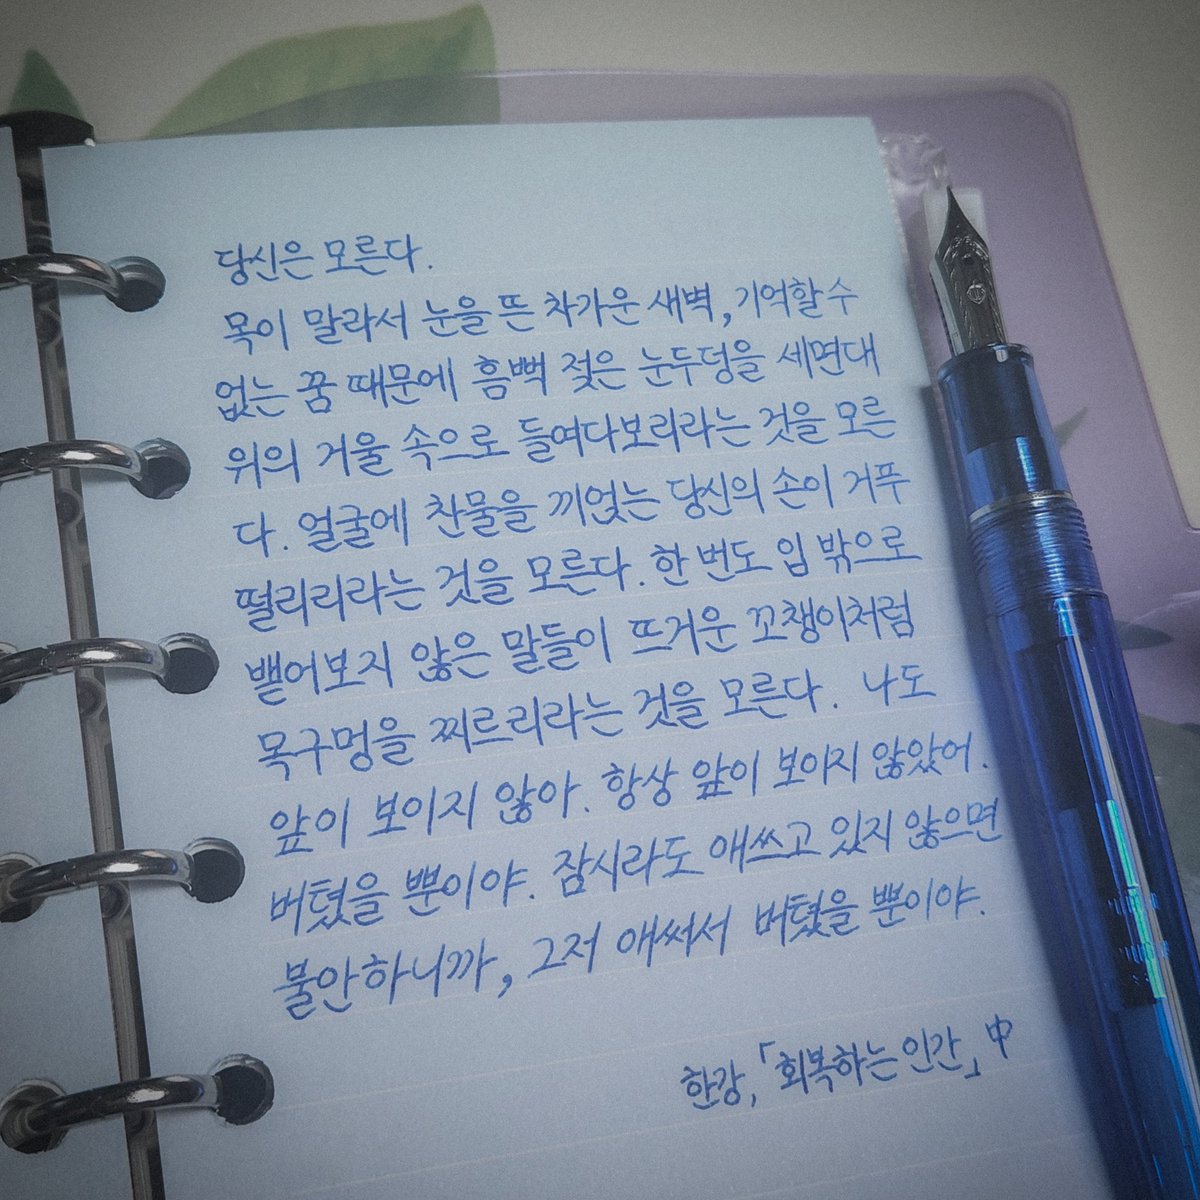 당신은 모른다.
목이 말라서 눈을 뜬 차가운 새벽, 기억할 수
없는 꿈 때문에 흠뻑 젖은 눈두덩을 세면대
위의 거울 속으로 들여다보리라는 것을 모른
다. 얼굴에 찬물을 끼얹는 당신의 손이 거푸
떨리리라는 것을 모른다. 한 번도 입 밖으로
뱉어보지 않은 말들이 뜨거운 꼬챙이처럼
목구멍을 찌르리라는 것을 모른다. 나도
앞이 보이지 않아. 항상 앞이 보이지 않았어.
버텼을 뿐이야. 잠시라도 애쓰고 있지 않으면
불안하니까, 그저 애써서 버텼을 뿐이야.
한강, 「회복하는 인간」 中